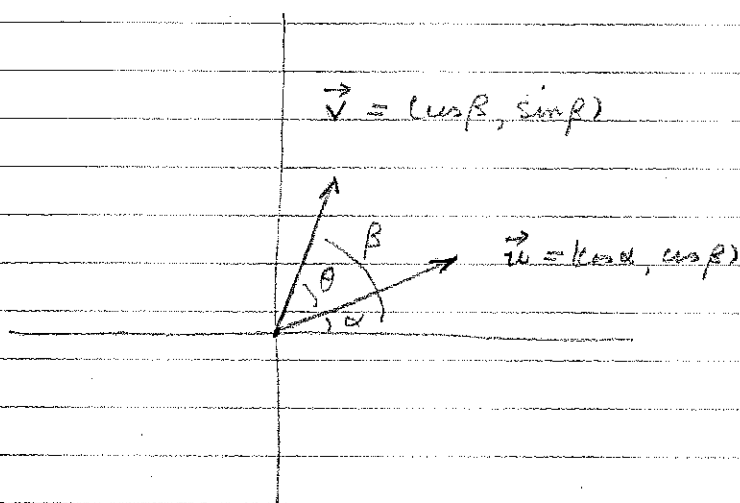 v⃗ = (cosβ, sinβ)
β
u⃗ = (cosα, cosβ)
θ
α